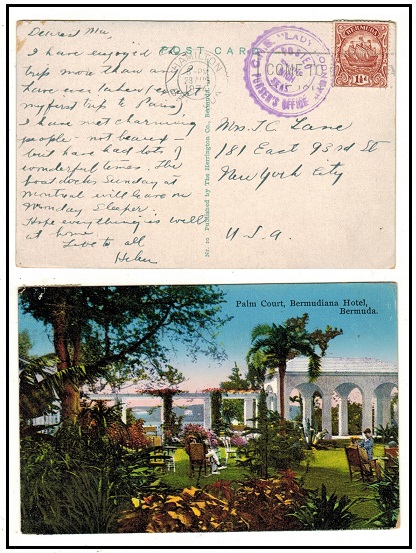 Dearest Ma,
I have enjoyed this
trip more than any I
have ever taken (except
my first trip to Paris)
I have met charming
people - not
but have had lots of
wonderful times. The
boat docks Sunday at
Montreal will leave on
Monday Sleeper.
Hope everything is well
at home
Love to all
Helen
POST CARD
No. 10 Published by The Herrington Co., Bermuda
HAMILTON
COME TO
"LADY
POSTED
PURSER'S OFFICE
BERMUDA
1½d
Mrs. T.C. Lane
181 East 93rd St
New York City
U.S.A.
Palm Court, Bermudiana Hotel,
Bermuda.